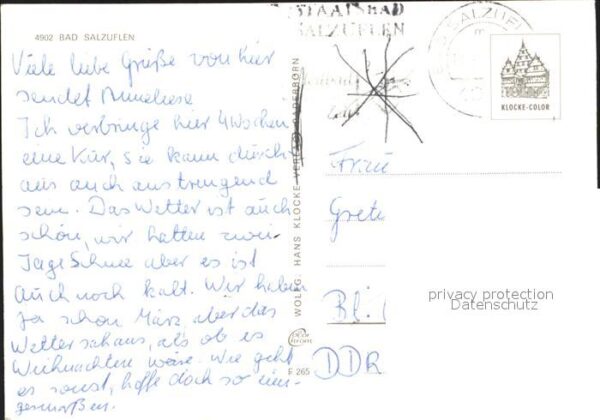 4902 BAD SALZUFLEN
Viele liebe Grüße von hier
sendet Anneliese
Ich verbringe hier 4 Wochen
eine Kur, sie kann durch-
aus auch anstrengend
sein. Das Wetter ist auch
schön, wir hatten zwei
Tage Schnee aber es ist
auch noch kalt. Wir haben
ja schon März, aber das
Wetter schaus, als ob es
Weihnachten wäre. Wie geht
es sonst, hoffe doch so eini-
germaßen.
WOLFG. HANS KLOCKE VERLAG PADERBORN
E 265
STAATSBAD
SALZUFLEN
BAD SALZUFLEN
KLOCKE-COLOR
Frau
Grete
Bl.
DDR
privacy protection
Datenschutz